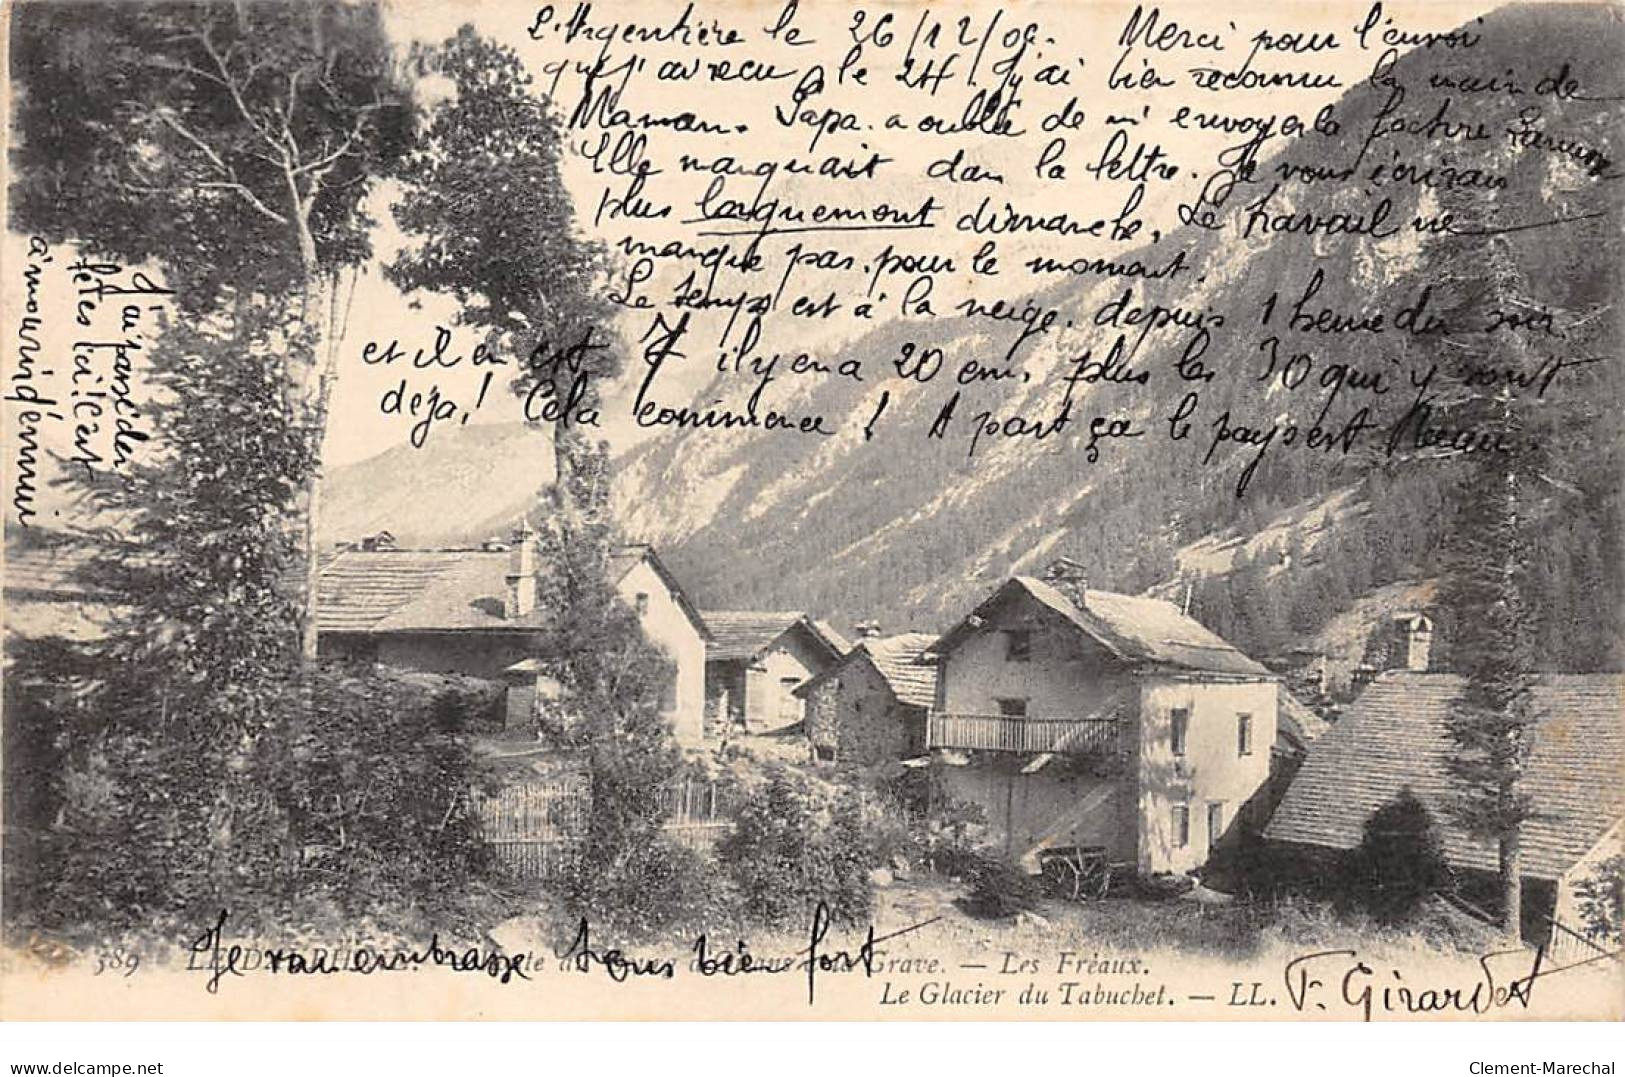 L'Argentière le 26/12/09. Merci pour l'envoi
que j'ai reçu le 24. J'ai bien reconnu la main de
Maman. Papa a oublié de m'envoyer la facture
Elle manquait dans la lettre. Je vous écrirai
plus longuement dimanche. Le travail ne
manque pas pour le moment.
Le temps est à la neige. depuis 1 heure du soir
et il en est 7 il y en a 20 cm. plus les 30 qui y sont
déja! Cela commence! A part ça le pays est
J'ai passé des
fêtes ici! C'est
à mourir d'ennui
Je vous embrasse tous bien fort
F. Girardet
589 LE DAUPHINÉ. Grave. — Les Fréaux.
Le Glacier du Tabuchet. — LL.
Clement-Marechal